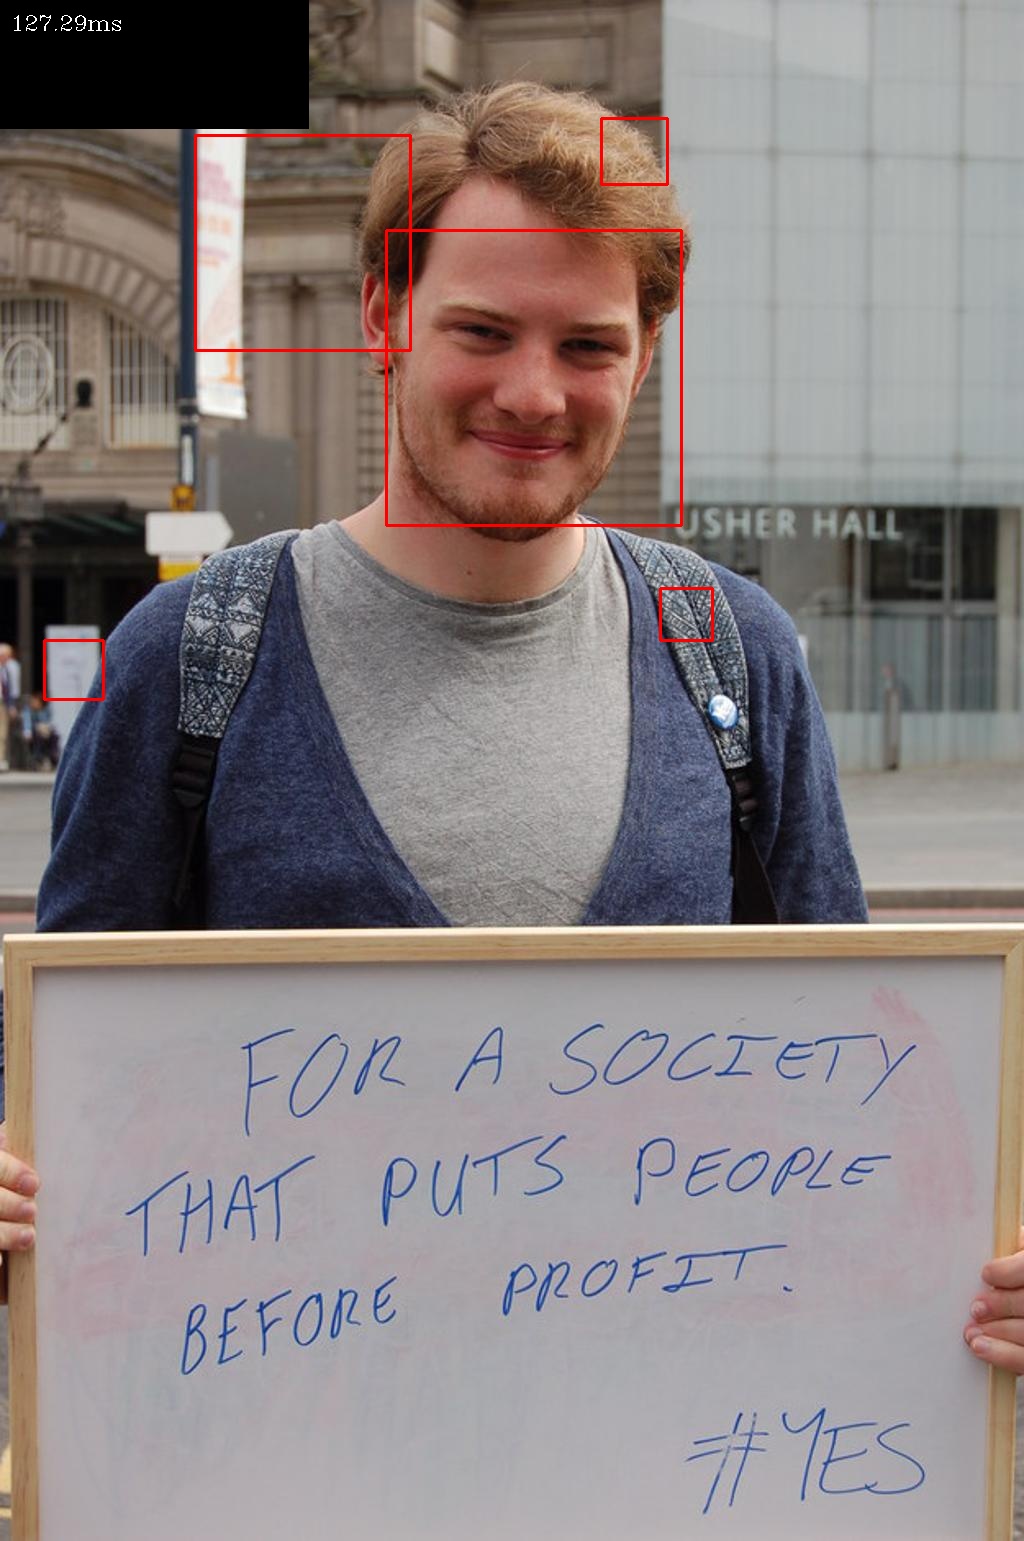 127.29ms
USHER HALL
FOR A SOCIETY
THAT PUTS PEOPLE
BEFORE PROFIT.
#YES